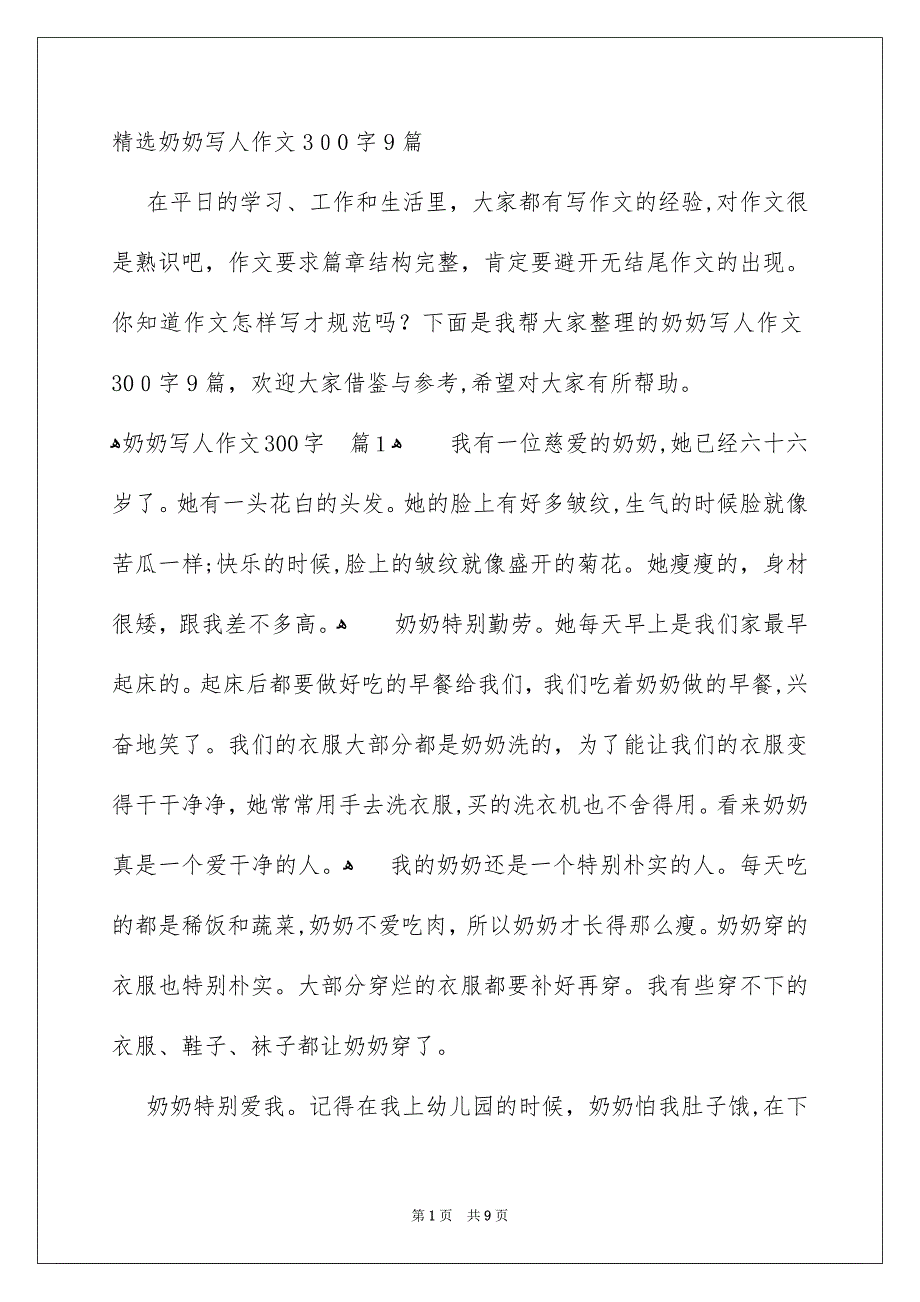 精选奶奶写人作文300字9篇
在平日的学习、工作和生活里，大家都有写作文的经验,对作文很
是熟识吧，作文要求篇章结构完整，肯定要避开无结尾作文的出现。
你知道作文怎样写才规范吗？下面是我帮大家整理的奶奶写人作文
300字9篇，欢迎大家借鉴与参考,希望对大家有所帮助。
ﻫ奶奶写人作文300字　篇1ﻫ　　我有一位慈爱的奶奶,她已经六十六
岁了。她有一头花白的头发。她的脸上有好多皱纹,生气的时候脸就像
苦瓜一样;快乐的时候,脸上的皱纹就像盛开的菊花。她瘦瘦的，身材
很矮，跟我差不多高。ﻫ　　奶奶特别勤劳。她每天早上是我们家最早
起床的。起床后都要做好吃的早餐给我们，我们吃着奶奶做的早餐,兴
奋地笑了。我们的衣服大部分都是奶奶洗的，为了能让我们的衣服变
得干干净净，她常常用手去洗衣服,买的洗衣机也不舍得用。看来奶奶
真是一个爱干净的人。ﻫ　　我的奶奶还是一个特别朴实的人。每天吃
的都是稀饭和蔬菜,奶奶不爱吃肉，所以奶奶才长得那么瘦。奶奶穿的
衣服也特别朴实。大部分穿烂的衣服都要补好再穿。我有些穿不下的
衣服、鞋子、袜子都让奶奶穿了。
奶奶特别爱我。记得在我上幼儿园的时候，奶奶怕我肚子饿,在下
第1页 共9页